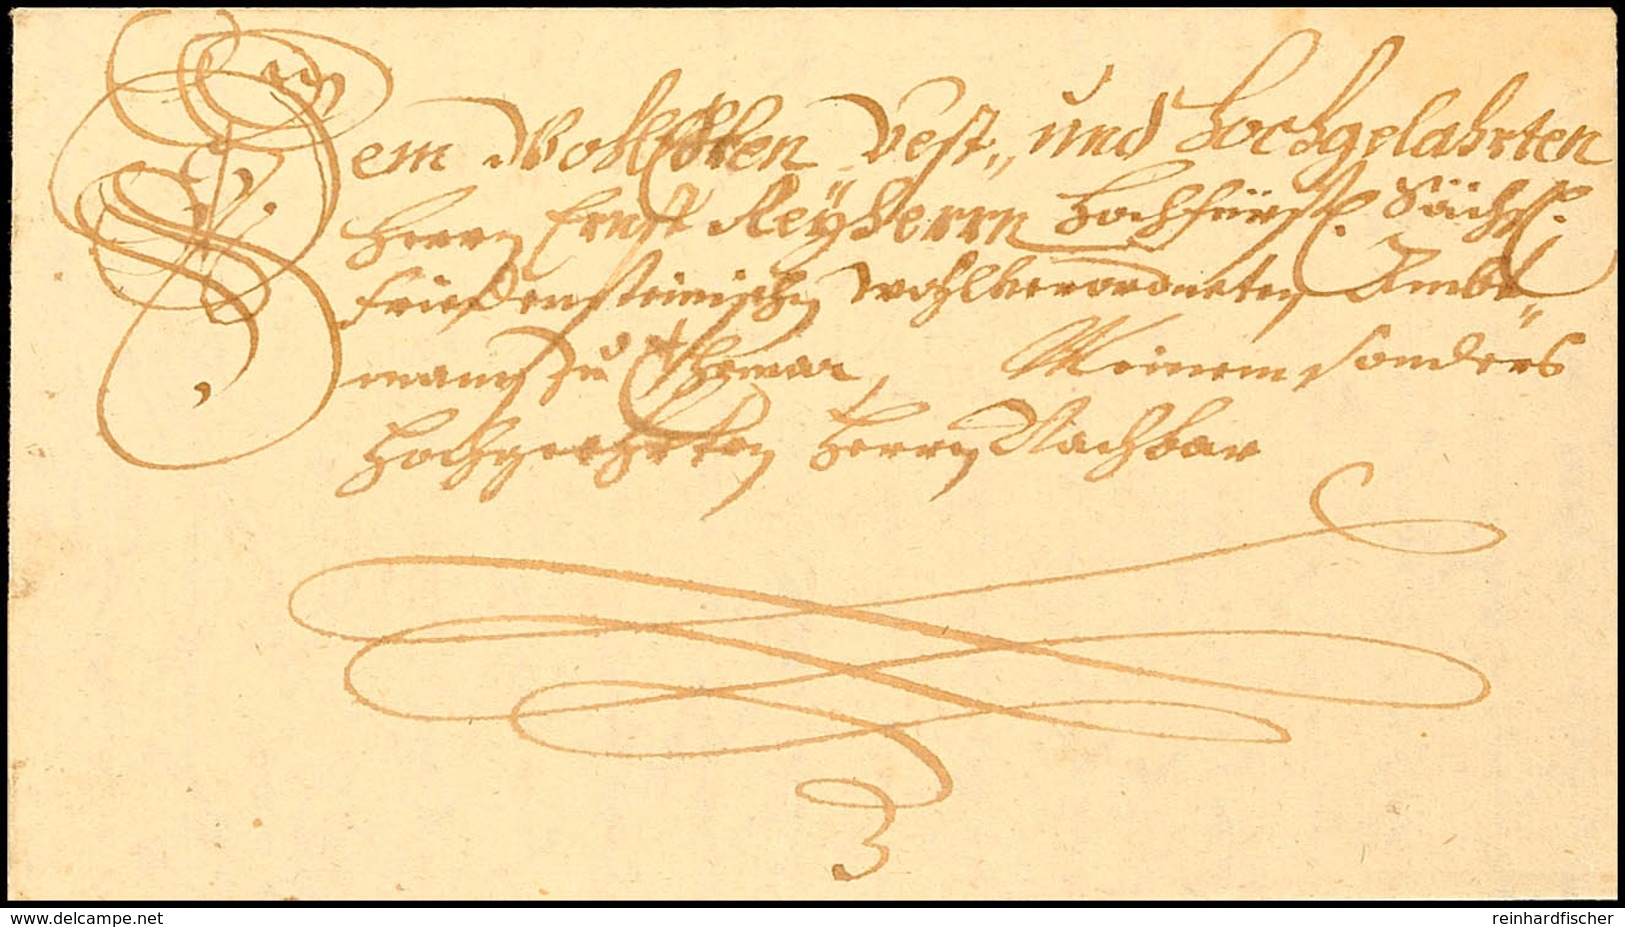 Dem WohlEdlen Vest„ und Hochgelahrten
Herrn Ernst Reyherrn Hochfürstl. Sächßl.
Friedensteinischen wohlverordneten Ambt„
mann zu Themar, Meinem sonders
Hochgeehrten Herrn Nachbar
3
www.delcampe.net
reinhardfischer